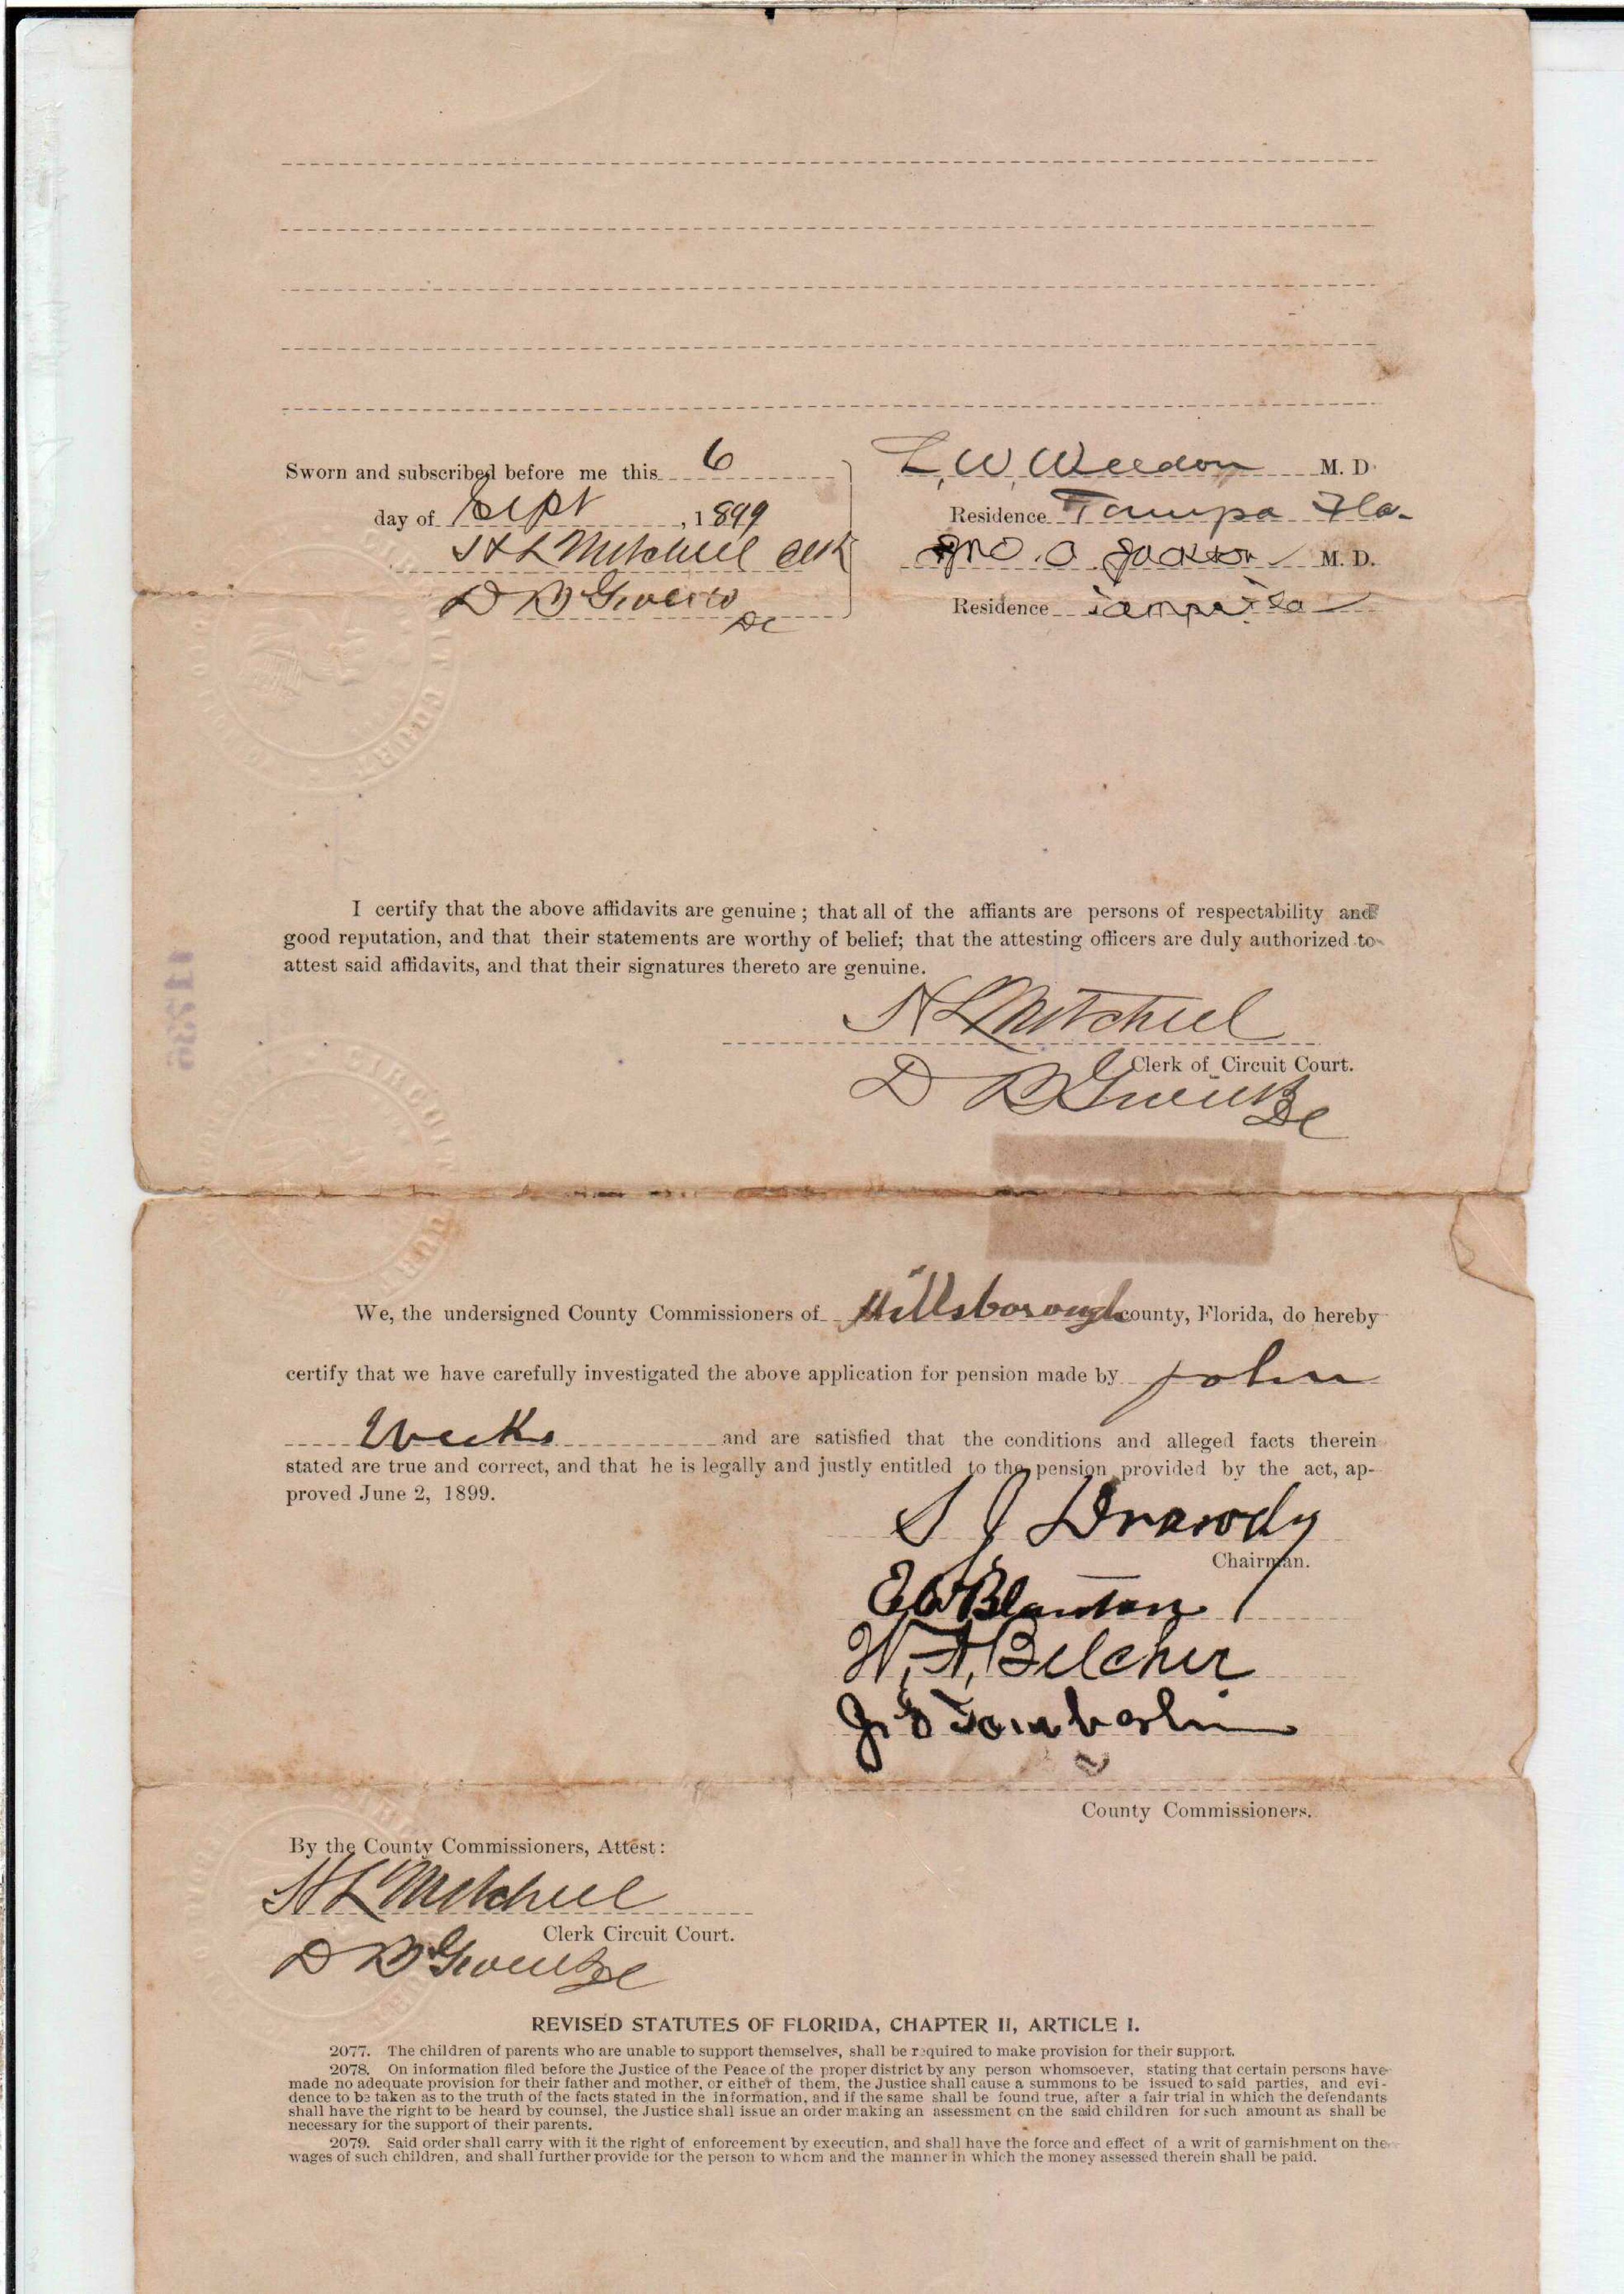 Sworn and subscribed before me this 6
day of Sept, 1899
H L Mitchell Clk
D B Givens
DC
L. W. Weedon M. D.
Residence Tampa Fla.
Jno. O Jackson M. D.
Residence Tampa Fla
CIRCUIT COURT
I certify that the above affidavits are genuine; that all of the affiants are persons of respectability and
good reputation, and that their statements are worthy of belief; that the attesting officers are duly authorized to
attest said affidavits, and that their signatures thereto are genuine.
H L Mitchell
Clerk of Circuit Court.
D B Givens DC
We, the undersigned County Commissioners of Hillsborough county, Florida, do hereby
certify that we have carefully investigated the above application for pension made by John
Weeks and are satisfied that the conditions and alleged facts therein
stated are true and correct, and that he is legally and justly entitled to the pension provided by the act, ap-
proved June 2, 1899.
S J Drawdy
Chairman.
E W Blanton
W. A. Belcher
County Commissioners.
By the County Commissioners, Attest:
H L Mitchell
Clerk Circuit Court.
D B Givens DC
REVISED STATUTES OF FLORIDA, CHAPTER II, ARTICLE I.
2077. The children of parents who are unable to support themselves, shall be required to make provision for their support.
2078. On information filed before the Justice of the Peace of the proper district by any person whomsoever, stating that certain persons have
made no adequate provision for their father and mother, or either of them, the Justice shall cause a summons to be issued to said parties, and evi-
dence to be taken as to the truth of the facts stated in the information, and if the same shall be found true, after a fair trial in which the defendants
shall have the right to be heard by counsel, the Justice shall issue an order making an assessment on the said children for such amount as shall be
necessary for the support of their parents.
2079. Said order shall carry with it the right of enforcement by execution, and shall have the force and effect of a writ of garnishment on the
wages of such children, and shall further provide for the person to whom and the manner in which the money assessed therein shall be paid.